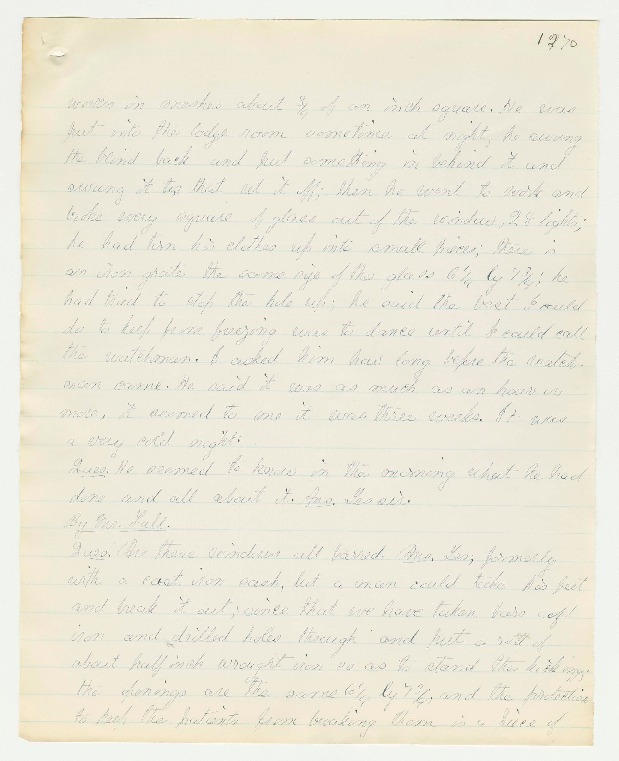 1270
woven in meshes about 3/4 of an inch square. He was
put into the lodge room sometime at night, he swung
the blind back and put something in behind it and
swung it too that let it off; then he went to work and
broke every square of glass out of the window, 28 lights;
he had torn his clothes up into small pieces; there is
an iron grate the same size of the glass 6 1/4 by 7 3/4; he
had tried to stop the hole up; he said the best I could
do to keep from freezing was to dance until I could call
the watchman. I asked him how long before the watch-
man came. He said it was as much as an hour or
more, it seemed to me it was three weeks. It was
a very cold night.
Ques. He seemed to know in the morning what he had
done and all about it. Ans. Yes sir.
By Mr. Hall.
Ques. Are these windows all barred Ans. Yes, formerly
with a cast iron sash, but a man could take his feet
and break it out; since that we have taken bars of
iron and drilled holes through and put a rod of
about half inch wrought iron so as to stand the kicking;
the openings are the same 6 1/4 by 7 3/4; and the protection
to keep the patients from breaking them is a piece of